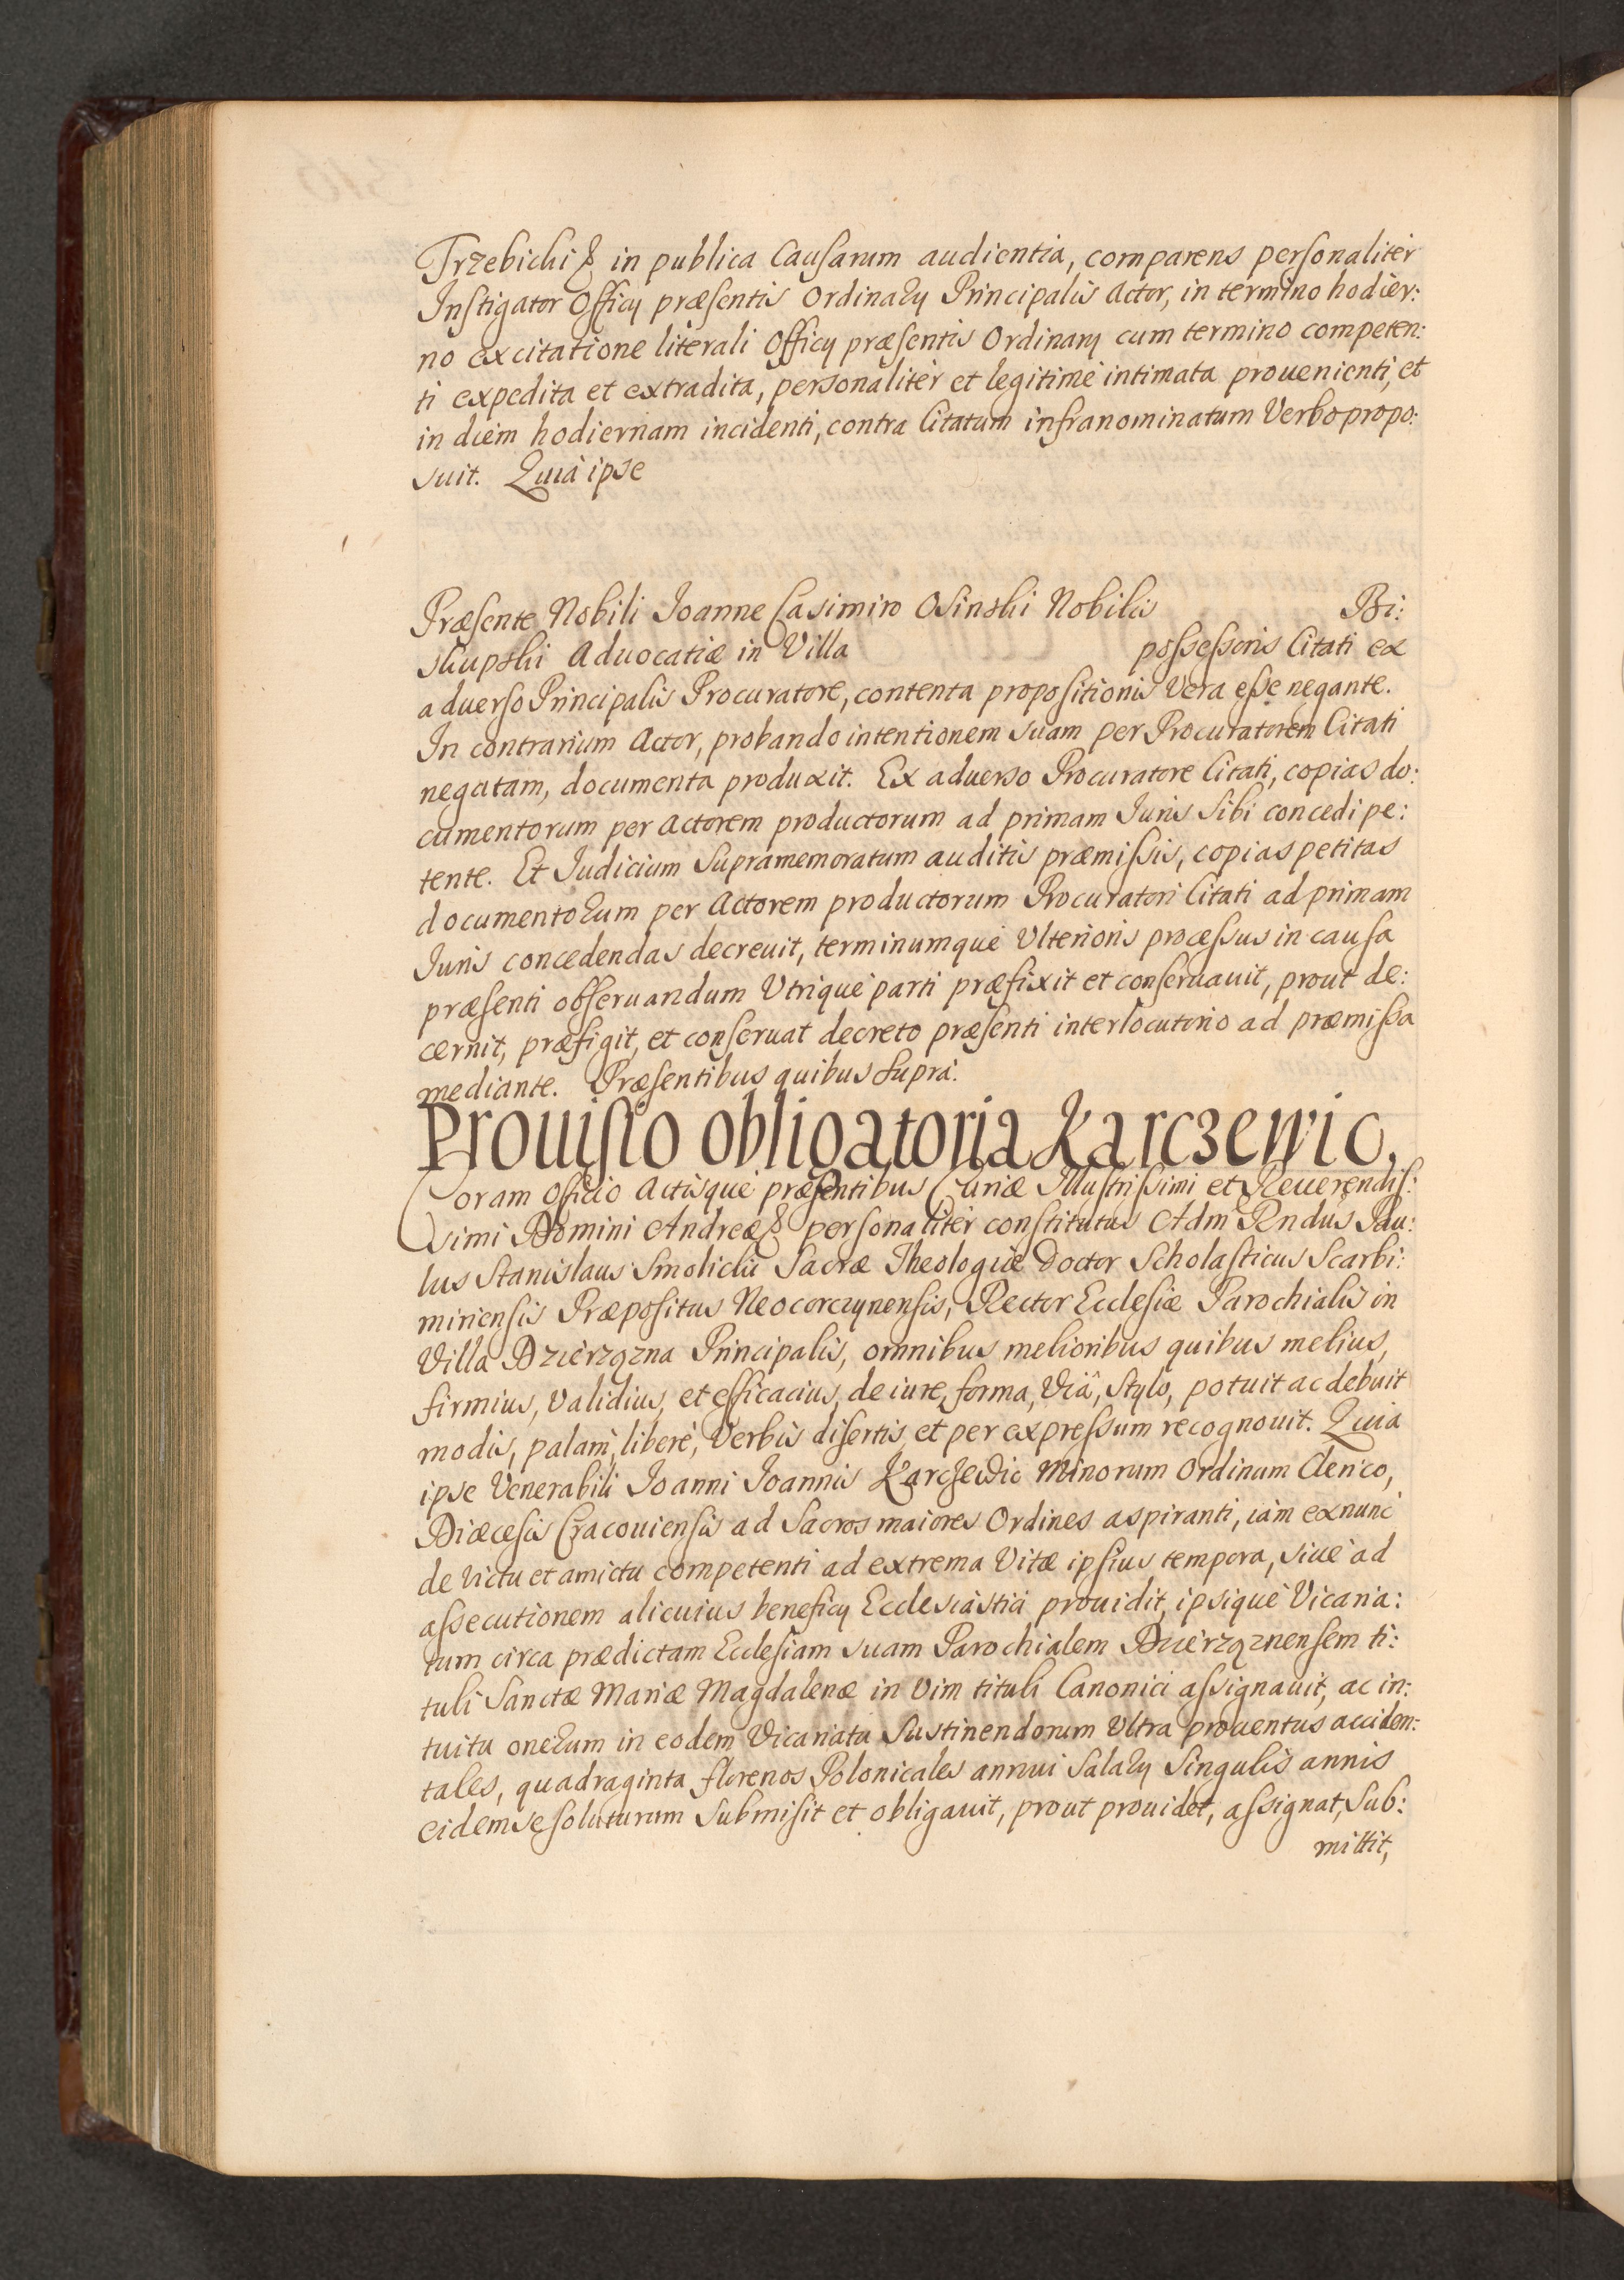 Trzebicki & in publica Causarum audientia, comparens personaliter
Instigator Officij præsentis Ordinarij Principalis Actor, in termino hodier:
no ex citatione literali Officij præsentis Ordinarij cum termino competen:
ti expedita et extradita, personalitèr et legitimè intimata prouenienti, et
in diem hodiernam incidenti, contra Citatum infranominatum Verbo propo:
suit. Quià ipse
Præsente Nobili Ioanne Casimiro Osinski Nobilis Bi:
skupski Aduocatiæ in Villa possessoris Citati ex
aduerso Principalis Procuratore, contenta propositionis Vera esse negante.
In contrarium Actor, probando intentionem suam per Procuratorem Citati
negatam, documenta produxit. Ex aduerso Procuratore Citati, copias do:
cumentorum per Actorem productorum ad primam Iuris sibi concedi pe:
tente. Et Iudicium supramemoratum auditis præmissis, copias petitas
documentorum per Actorem productorum Procuratori Citati ad primam
Iuris concedendas decreuit, terminumquè Vlterioris processus in causa
præsenti obseruandum Vtriquè parti præfixit et conseruauit, prout de:
cernit, præfigit, et conseruat decreto præsenti interlocutorio ad præmissa
mediante. Præsentibus quibus suprà.
Prouisio obligatoria Karczewic.
Coram Officio Actisquè præsentibus Curiæ Illustrissimi et Reuerendis:
simi Domini Andreæ & personalitèr constitutus Adm Rndus Pau:
lus Stanislaus Smolicki Sacræ Theologiæ Doctor Scholasticus Scarbi:
miriensis Præpositus Neocorczynensis, Rector Ecclesiæ Parochialis in
Villa Dzierzązna Principalis, omnibus melioribus quibus melius,
firmius, Validius, et efficacius, de iure, forma, Viâ, Stylo, potuit ac debuit
modis, palàm, liberè, Verbis disertis et per expressum recognouit. Quia
ipse Venerabili Ioanni Ioannis Karczewic Minorum Ordinum Clerico,
Diæcesis Cracouiensis ad Sacros maiores Ordines aspiranti, iàm ex nunc
de Victu et amictu competenti ad extrema Vitæ ipsius tempora, siuè ad
assecutionem alicuius beneficij Ecclesiàstici prouidit, ipsiquè Vicaria:
tum circa prædictam Ecclesiam suam Parochialem Dzierząznensem ti:
tuli Sanctæ Mariæ Magdalenæ in Vim tituli Canonici assignauit, ac in:
tuitu onerum in eodem Vicariatu Sustinendorum Vltra prouentus acciden:
tales, quadraginta florenos Polonicales annui Salarij Singulis annis
eidem se soluturum Submisit et obligauit, prout prouidet, assignat, Sub:
mittit,